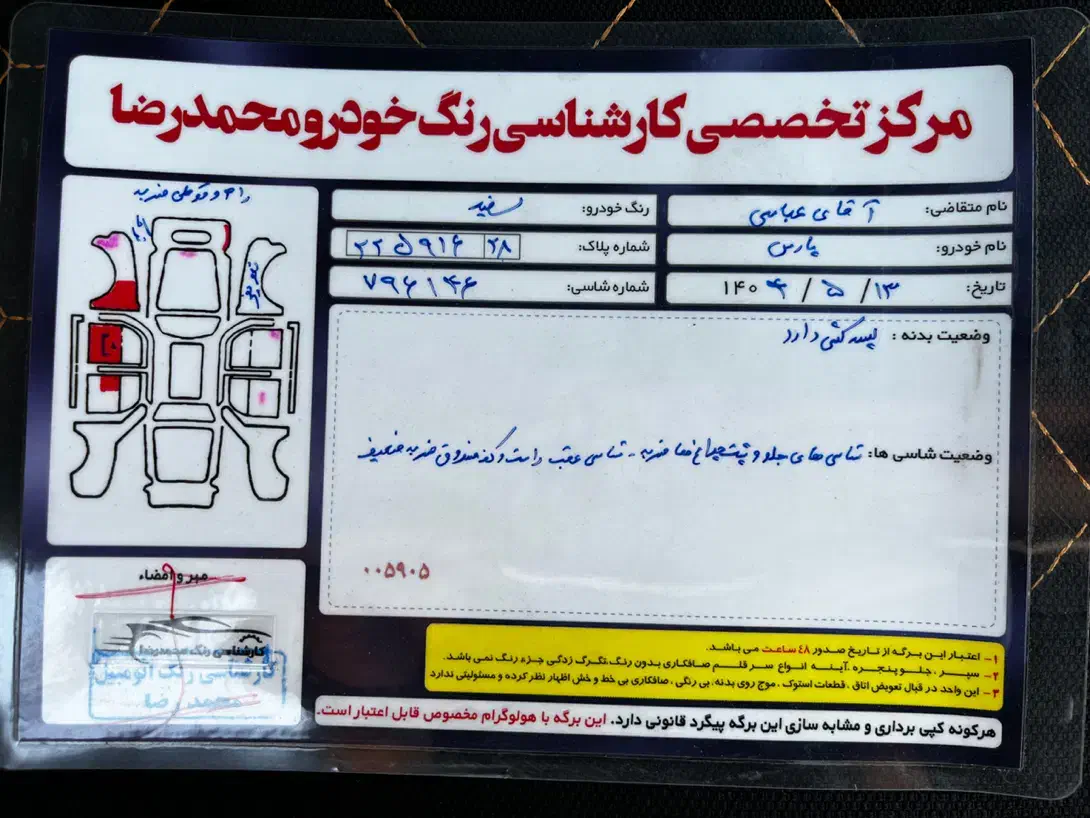 مرکز تخصصی کارشناسی رنگ خودرو محمدرضا
نام متقاضی: آقای عباسی
رنگ خودرو: سفید
نام خودرو: پارس
شماره پلاک: ۲۲ ۵ ۹۱۶ ۲۸
تاریخ: ۱۴۰۴ / ۵ / ۱۳
شماره شاسی: ۷۹۶۱۴۶
وضعیت بدنه : لیسه کشی دارد
وضعیت شاسی ها: شاسی های جلو و پشت چراغ ها ضربه - شاسی عقب راست و کف صندوق ضربه ضعیف
۰۰۵۹۰۵
مهر و امضاء
کارشناسی رنگ محمدرضا
کارشناسی رنگ اتومبیل
محمد رضا
۱- اعتبار این برگه از تاریخ صدور ۴۸ ساعت می باشد.
۲- سپر ، جلو پنجره ،آینه انواع سر قلم صافکاری بدون رنگ،تگرگ زدگی جزء رنگ نمی باشد.
۳- این واحد در قبال تعویض اتاق ، قطعات استوک ، موج روی بدنه، بی رنگی ، صافکاری بی خط و خش اظهار نظر نکرده و مسئولیتی ندارد
هرگونه کپی برداری و مشابه سازی این برگه پیگرد قانونی دارد. این برگه با هولوگرام مخصوص قابل اعتبار است.